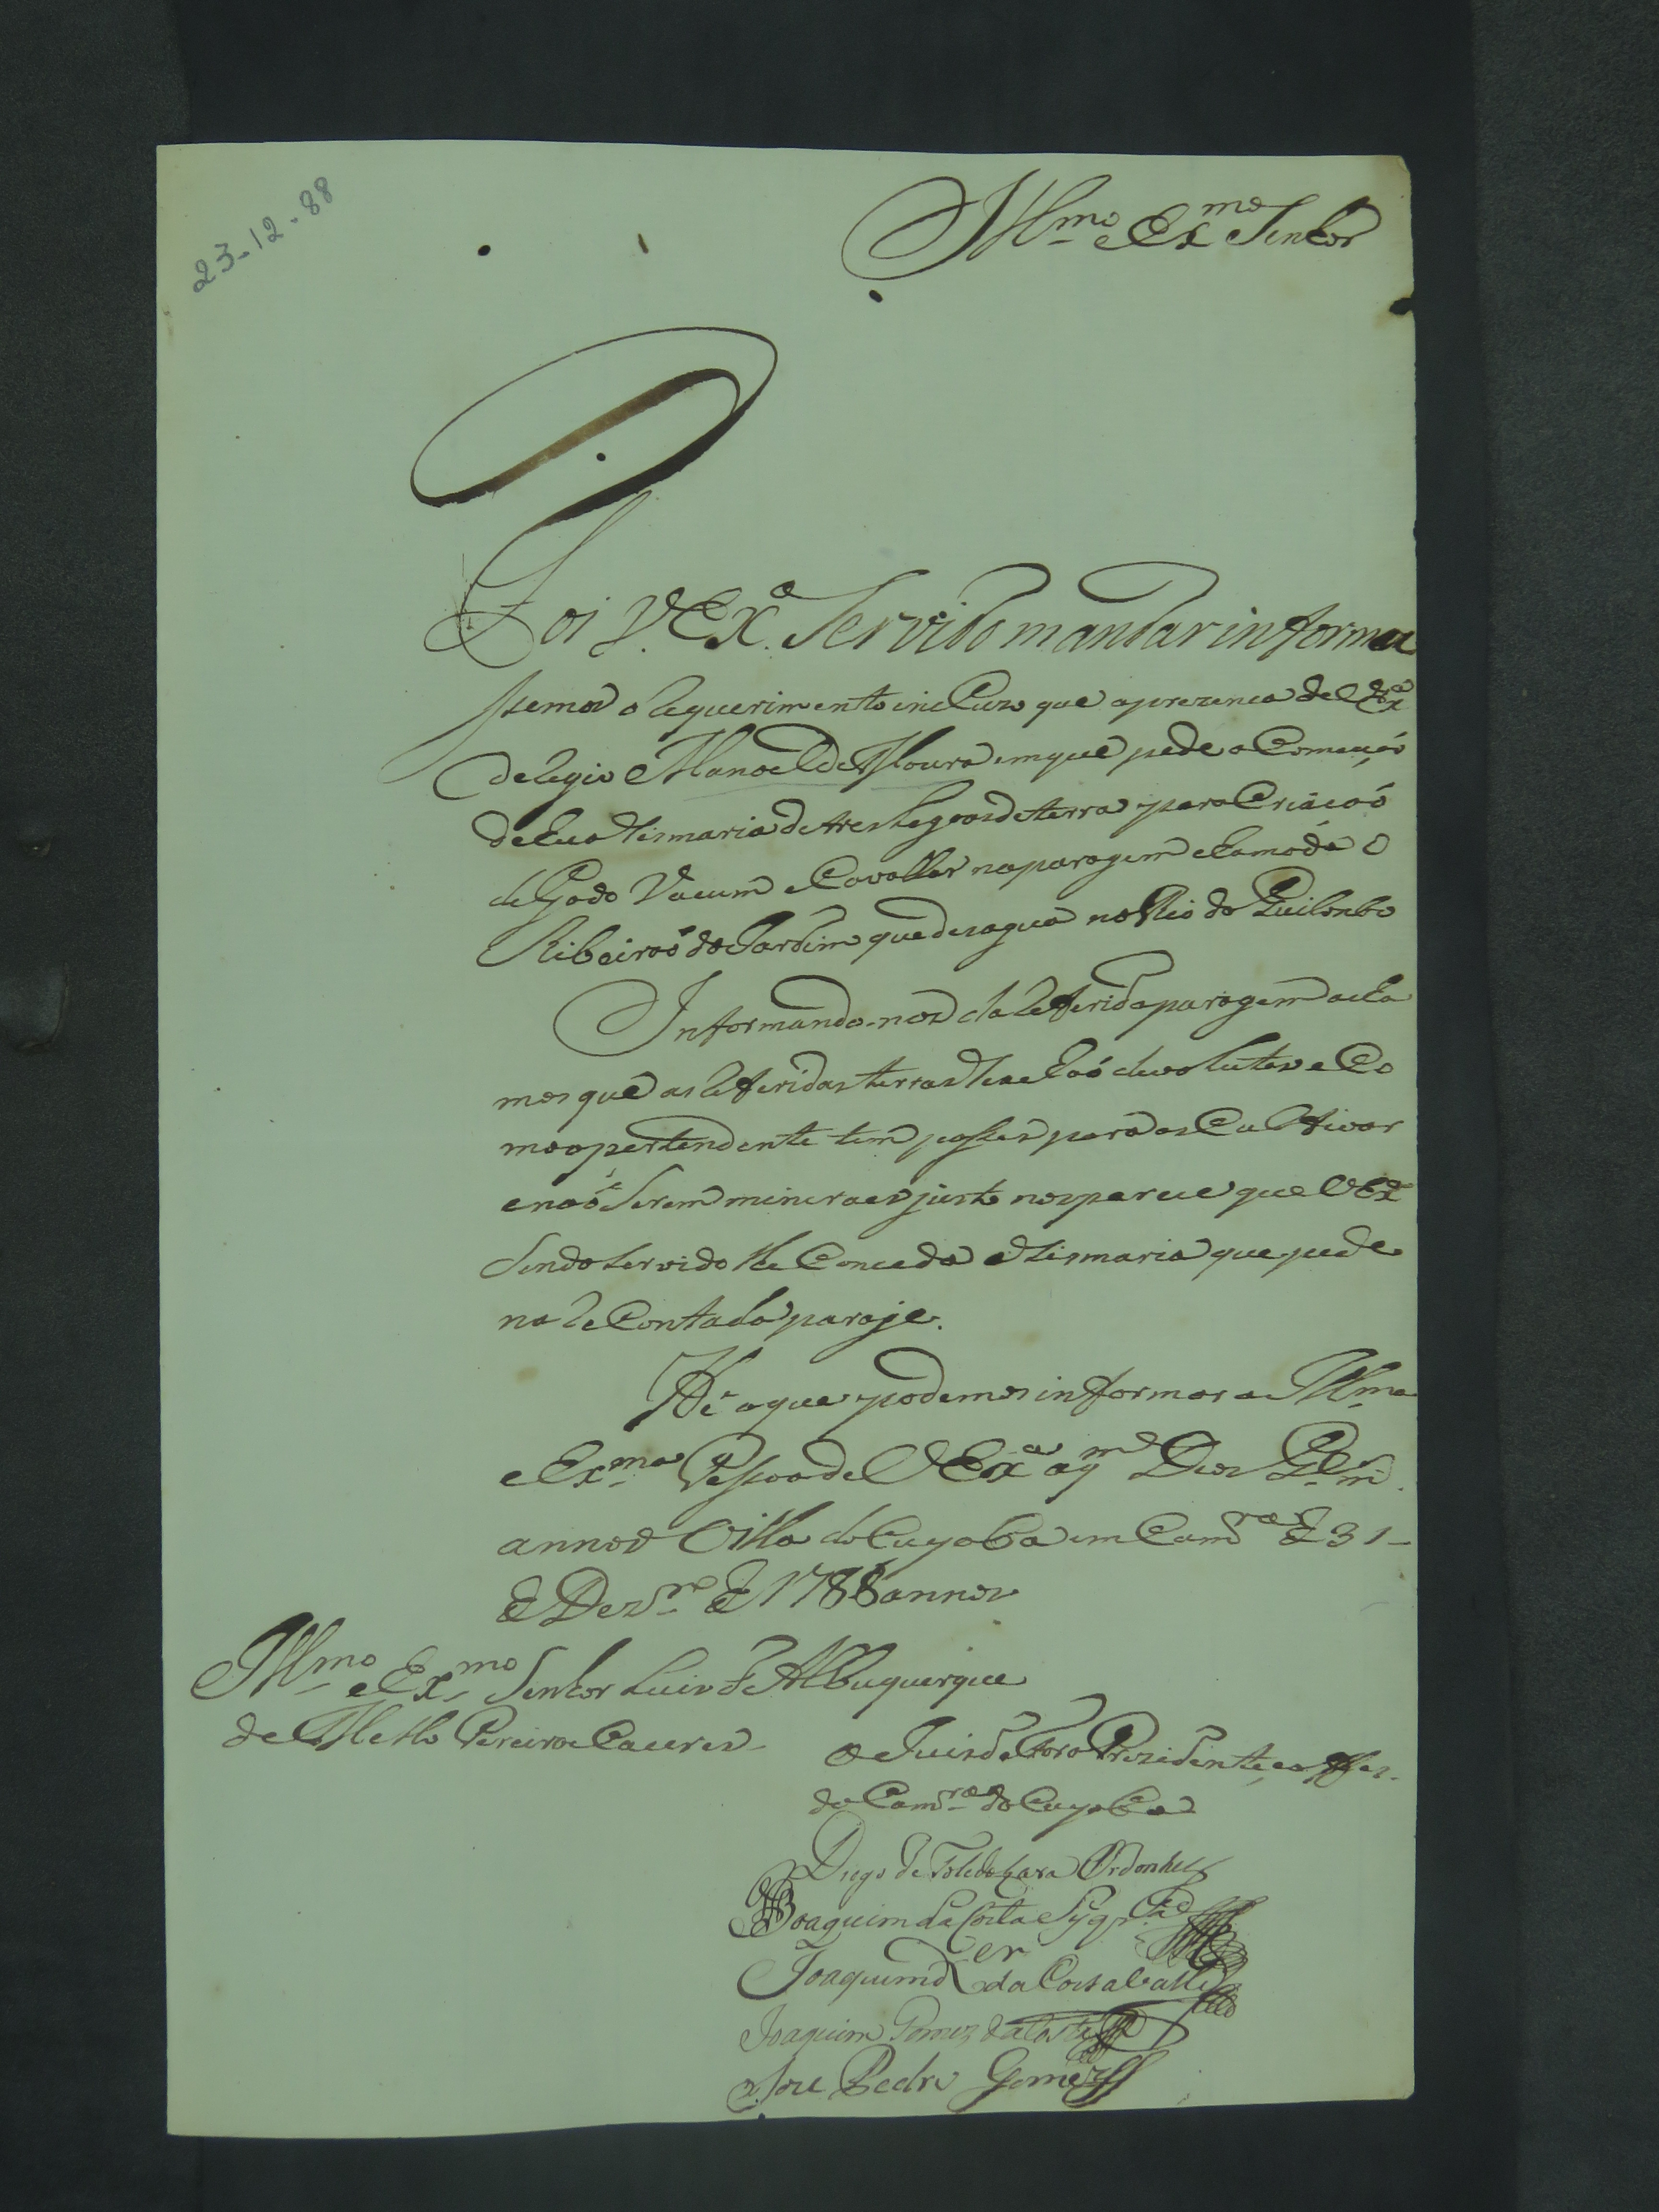 23-12-88
Illmo e Exmo Senhor
Foi V. Exa. Servido mandar informa
semos o requerimento incluzo que aprezenca de V Exa
delegio Manoel de Moura em que pede a Comcução
de hua Sismaria de tres legoas de terra para Criacaó
de Gado Vacum e Cavallar na paragem chamada o
Ribeiraó do Jardim que desagua no Rio do Quilombo
Informando-nos da referida paragem acha
mos que as referidas terras se achaó devolutas e Co
mo o pertendente tem posses para as Cultivar
e naó serem mineraes justo nos parece que V Exa
Sendo servido lhe Conceda a Sismaria que pede
na reContada paraje.
Hé o que podemos informar a Illma
e Exma Pessoa de V Exa a qm Deos Gde m.
annos Villa do Cuyaba em Camra de 31-
de Dezro de 1788 annos
Illmo e Exmo Senhor Luis de Albuquerque
de Mello Pereira e Caceres
O Juis de Fora Prezidente, e offes.
da Camra do Cuyaba
Diogo de Toledo Lara Ordonhes
Joaquim da Costa Syqra
Joaquim da Costa
Joaquim Gomes da Costa
Joze Pedro Gomes